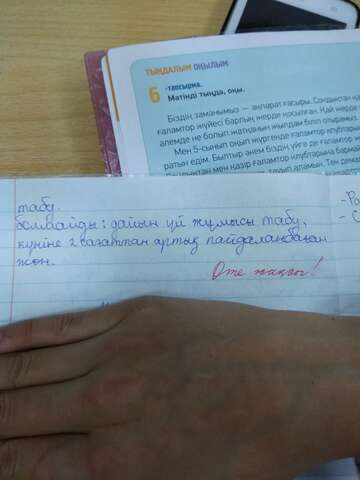 ТЫҢДАЛЫМ ОҚЫЛЫМ
6 -тапсырма.
Мәтінді тыңда, оқы.
Біздің заманымыз — ақпарат ғасыры. Сондықтан қа
ғаламтор жүйесі барлық жерде қосылған. Қай жерде
әлемде не болып жатқанын жылдам біліп отырамыз.
Мен 5-сынып оқып жүргенде ғаламтор клубтары
ратын едім. Былтыр әкем біздің үйге де ғаламтор ж
мен қазір ғаламтор клубтарына бармай
алып аламын. Тек
табу.
болмайды: дайын үй жұмысы табу,
күніне 2 сағаттан артық пайдаланбаған
жөн.
Өте жақсы!